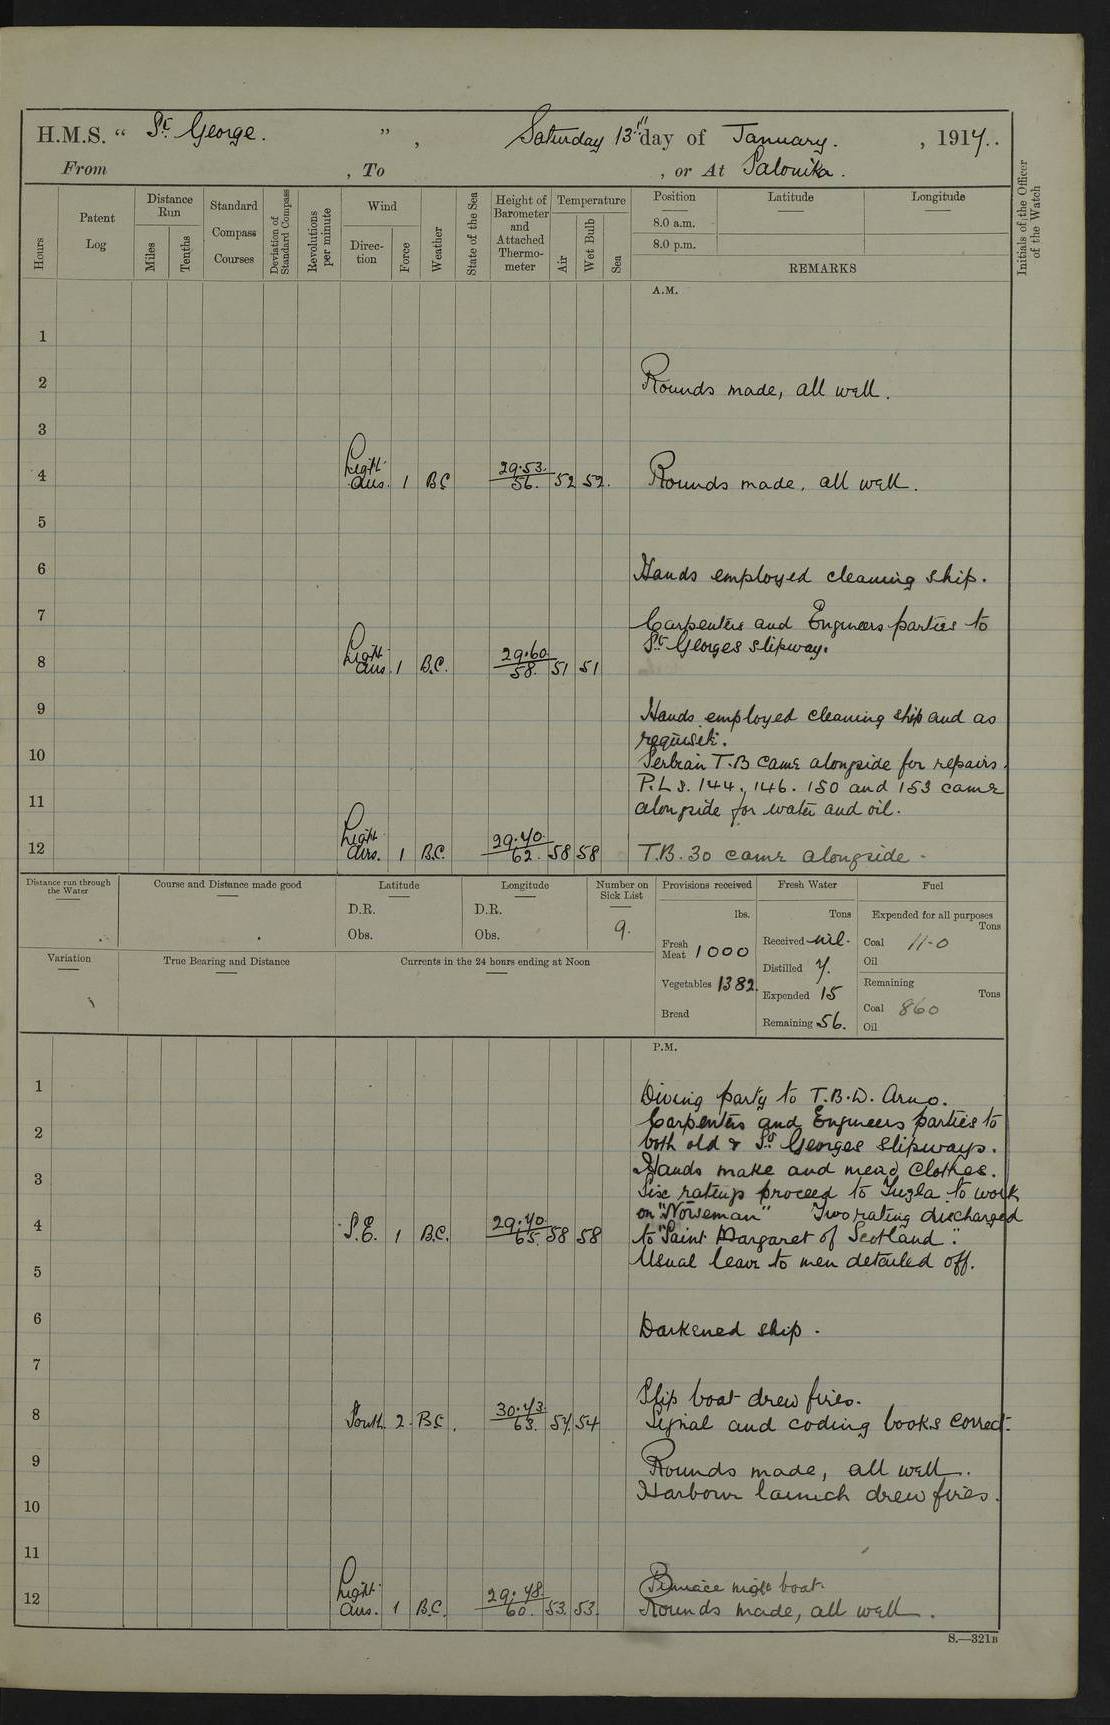 H.M.S. “ St. George. ” , Saturday 13th day of January. , 1917.
From , To , or At Salonika.
Hours
Patent Log
Distance Run
Miles
Tenths
Standard Compass Courses
Deviation of Standard Compass
Revolutions per minute
Wind
Direc-tion
Force
Weather
State of the Sea
Height of Barometer and Attached Thermo-meter
Temperature
Air
Wet Bulb
Sea
Position Latitude Longitude
8.0 a.m.
8.0 p.m.
REMARKS
Initials of the Officer of the Watch
A.M.
1
2 Rounds made, all well.
3
4 Light airs. 1 BC 29.53/56. 52 52. Rounds made, all well.
5
6 Hands employed cleaning ship.
7 Carpenters and Engineers parties to
St Georges slipway.
8 Light airs. 1 B.C. 29.60/58. 51 51
9 Hands employed cleaning ship and as
requisite.
10 Serbian T.B came alongside for repairs.
P.L s. 144, 146. 150 and 153 came
11 alongside for water and oil.
12 Light airs. 1 B.C. 29.70/62. 58 58 T.B. 30 came alongside.
Distance run through the Water
Course and Distance made good
Latitude
D.R.
Obs.
Longitude
D.R.
Obs.
Number on Sick List
9.
Variation
True Bearing and Distance
Currents in the 24 hours ending at Noon
Provisions received
lbs.
Fresh Meat 1000
Vegetables 1382.
Bread
Fresh Water
Tons
Received nil.
Distilled 7.
Expended 15
Remaining 56.
Fuel
Expended for all purposes
Tons
Coal 11-0
Oil
Remaining
Tons
Coal 860
Oil
P.M.
1 Diving party to T.B.D. Arno.
Carpenters and Engineers parties to
2 both old & St Georges slipways.
Hands make and mend clothes.
3 Six ratings proceed to Tuzla to work
on "Norseman" Two rating discharged
4 S.E. 1 B.C. 29.70/65. 58 58 to "Saint Margaret of Scotland".
5 Usual leave to men detailed off.
6 Darkened ship.
7
Slip boat drew fires.
8 South. 2 B.C. 30.73/63. 54 54 Signal and coding books correct.
9 Rounds made, all well.
10 Harbour launch drew fires.
11
Pinnace night boat.
12 Light airs. 1 B.C. 29.78./60. 53. 53. Rounds made, all well.
S.—321B